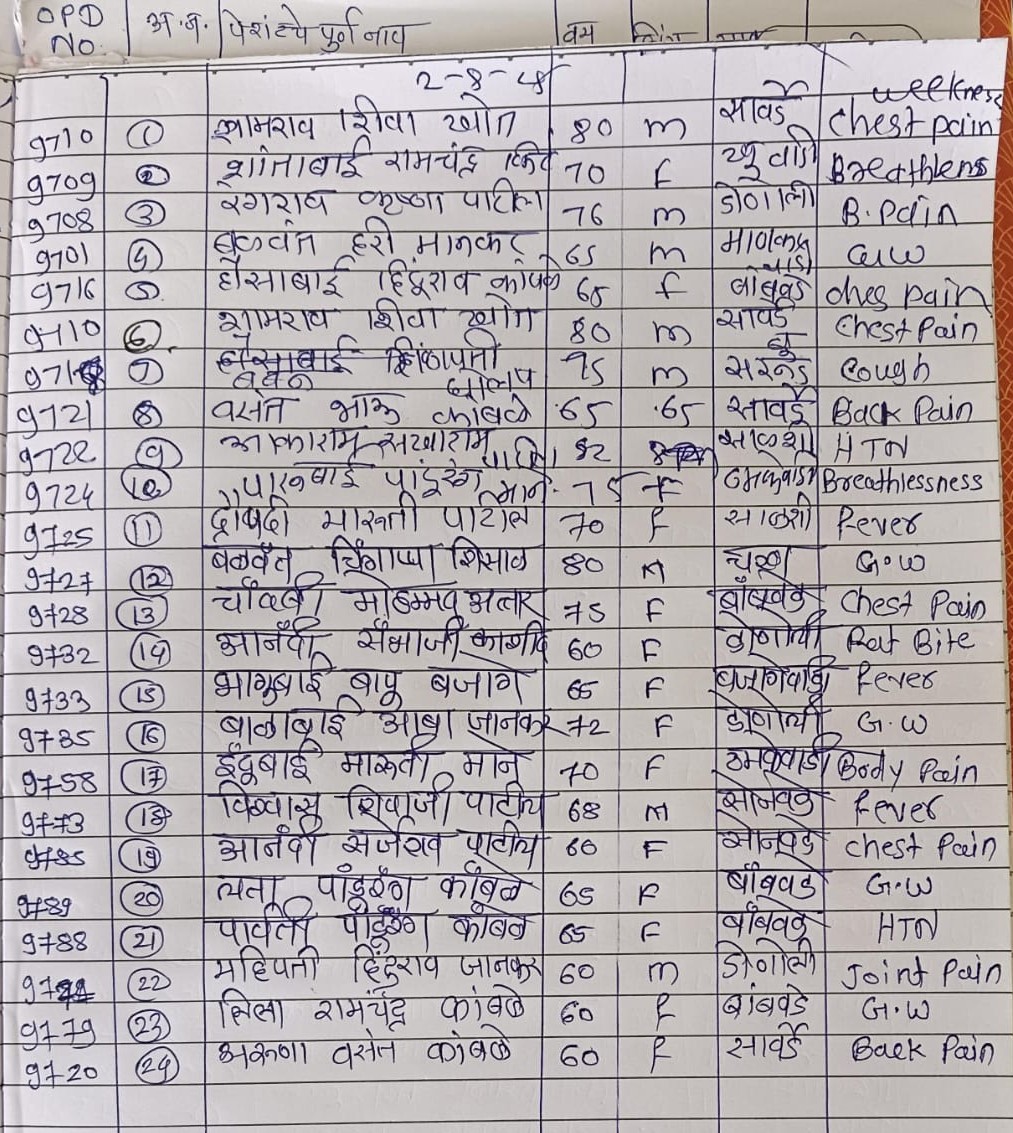 OPD NO. अ.न. पेशंटचे पुर्ण नाव वय लिंग
2-8-25
weekness
9710 1 शामराव शिवा खोत 80 m सावर्डे Chest pain
9709 2 शांताबाई रामचंद्र 70 f Breathlens
9708 3 रंगराव कृष्णा पाटील 76 m डोणोली B.Pain
9701 4 बळवंत हरी मानकर 65 m GW
9716 5 हौसाबाई हिंदूराव कांबळे 65 f बांबवडे ches pain
9710 6 शामराव शिवा खोत 80 m सावर्डे Chest Pain
971 7 बबन घोलप 75 m सरूड Cough
9721 8 वसंत भाऊ कांबळे 65 .65 सावर्डे Back Pain
9722 9 आकाराम सखाराम पाटील 82 साळशी HTN
9724 10 पारूबाई पांडुरंग माने 75 F ठमकेवाडी Breathlessness
9725 11 द्रौपदी मारुती पाटील 70 f साळशी Fever
9727 12 बळवंत शिसाळ 80 M चरण G.W
9728 13 चाँदबी मोहम्मद अत्तार 75 F बांबवडे Chest Pain
9732 14 आनंदी संभाजी काशीद 60 F डोणोली Rat Bite
9733 15 भागुबाई बापु बजागे 65 F बजागेवाडी Fever
9735 16 बाळाबाई आबा जानकर 72 F डोणोली G.W
9758 17 इंदुबाई मारुती माने 70 F ठमकेवाडी Body Pain
9773 18 विश्वास शिवाजी पाटील 68 M सोनवडे Fever
9785 19 आनंदी सर्जेराव पाटील 60 F सोनवडे Chest Pain
9789 20 लता पांडुरंग कांबळे 65 F बांबवडे G.W
9788 21 पार्वती पांडुरंग कांबळे 65 F बांबवडे HTN
22 महिपती हिंदुराव जानकर 60 m डोणोली Joint Pain
9779 23 लिला रामचंद्र कांबळे 60 f बांबवडे G.W
9720 24 अरुणा वसंत कांबळे 60 f सावर्डे Back Pain